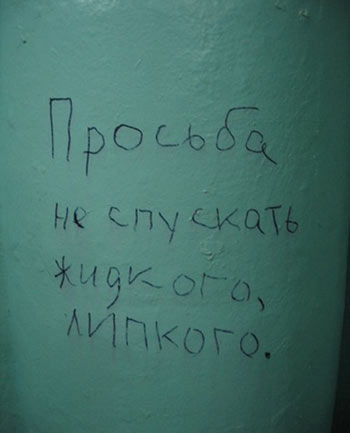 Просьба
не спускать
жидкого,
липкого.